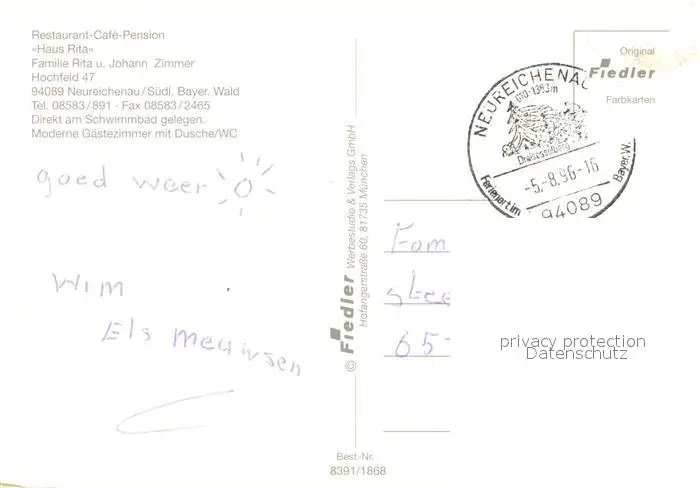 Restaurant-Café-Pension
»Haus Rita«
Familie Rita u. Johann Zimmer
Hochfeld 47
94089 Neureichenau/Südl. Bayer. Wald
Tel. 08583/891 · Fax 08583/2465
Direkt am Schwimmbad gelegen.
Moderne Gästezimmer mit Dusche/WC
goed weer
Wim
Els Meuwsen
© Fiedler Werbestudio & Verlags GmbH
Hofangerstraße 60, 81735 München
Best.-Nr.
8391/1868
Original
Fiedler
Farbkarten
NEUREICHENAU
610-1383m
Dreisesselberg
-5.-8.96-16
Ferienort im
Bayer. W.
94089
Fam
stee
65-
privacy protection
Datenschutz